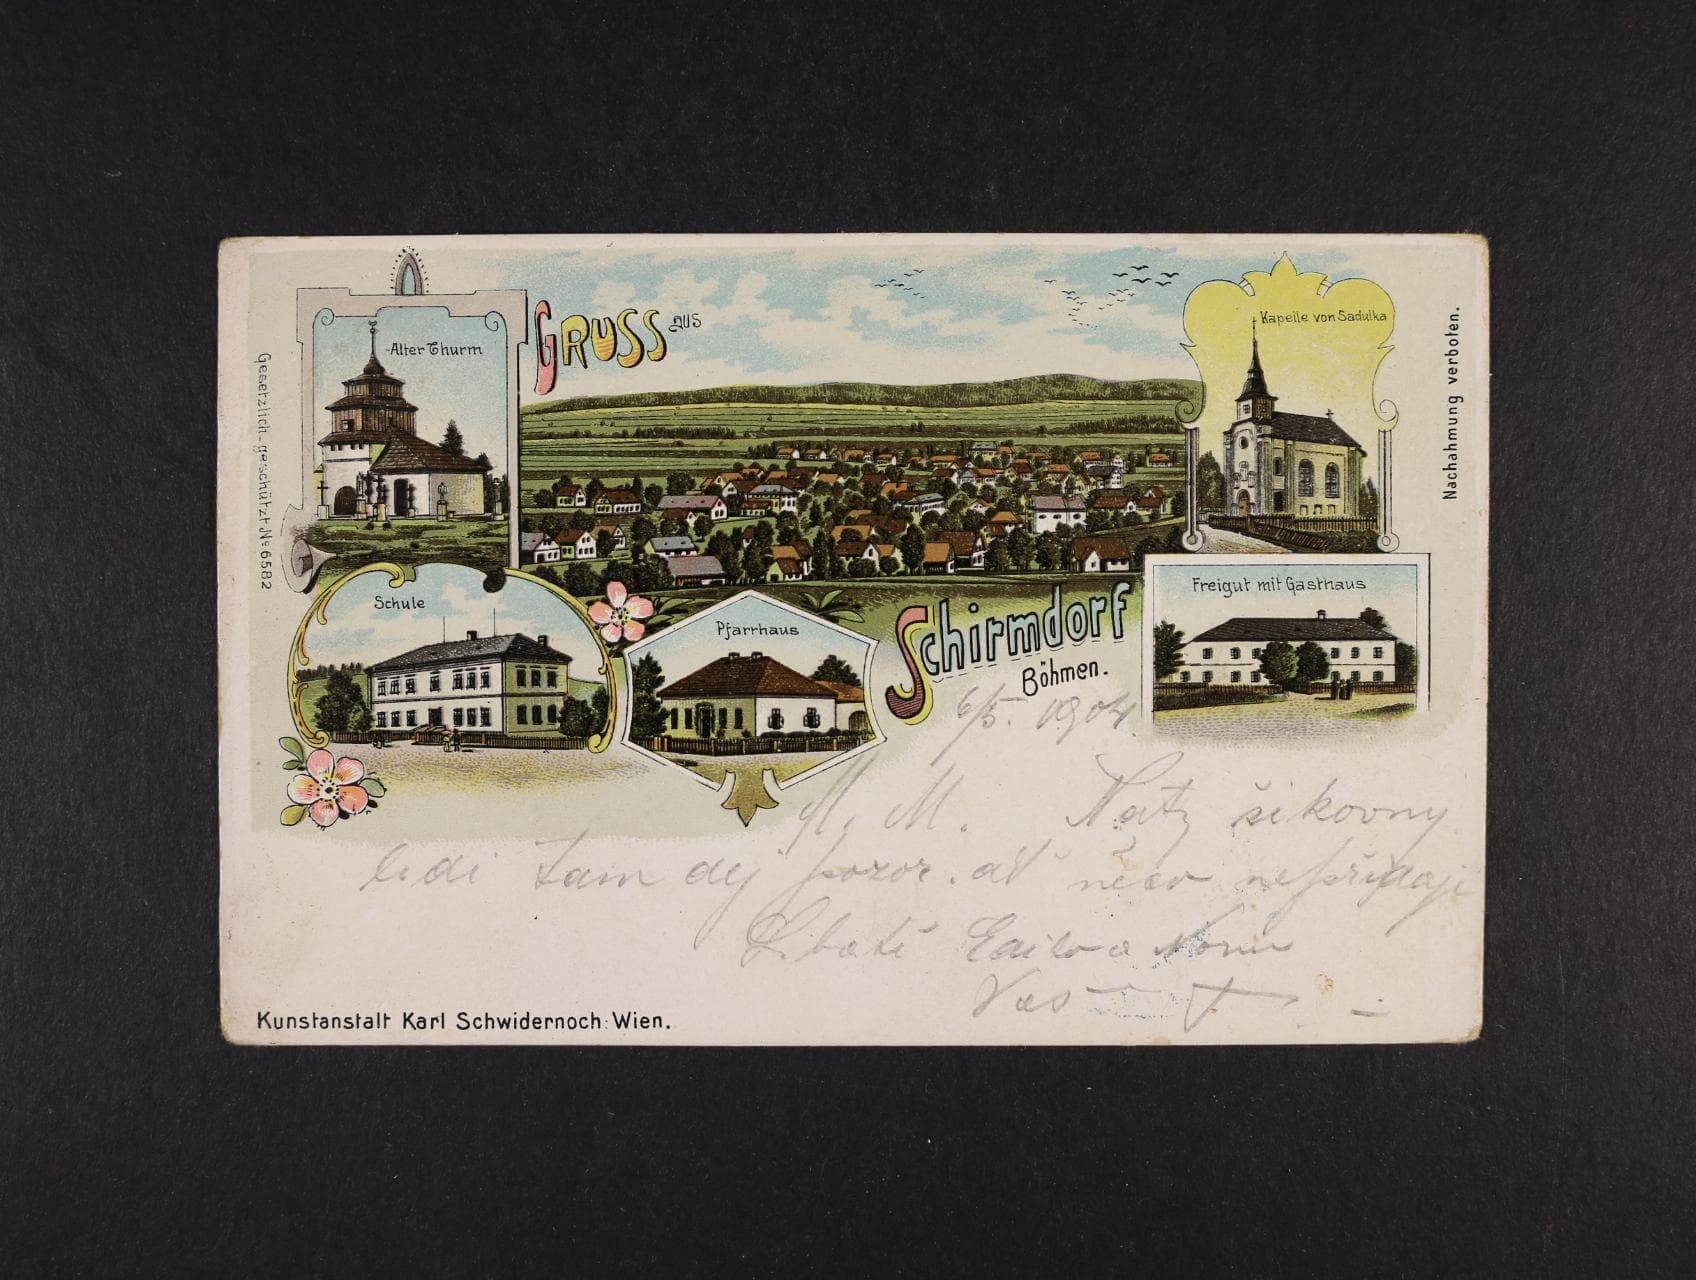 Gruss aus
Alter Thurm
Kapelle von Sadulka
Gesetzlich geschützt No 6582
Nachahmung verboten.
Schule
Pfarrhaus
Schirmdorf
Böhmen.
Freigut mit Gasthaus
6/5. 1904
M. M. šikovny
lidi tam dej pozor. ať něco nepřidaji
Líbaté a
Vas
Kunstanstalt Karl Schwidernoch: Wien.